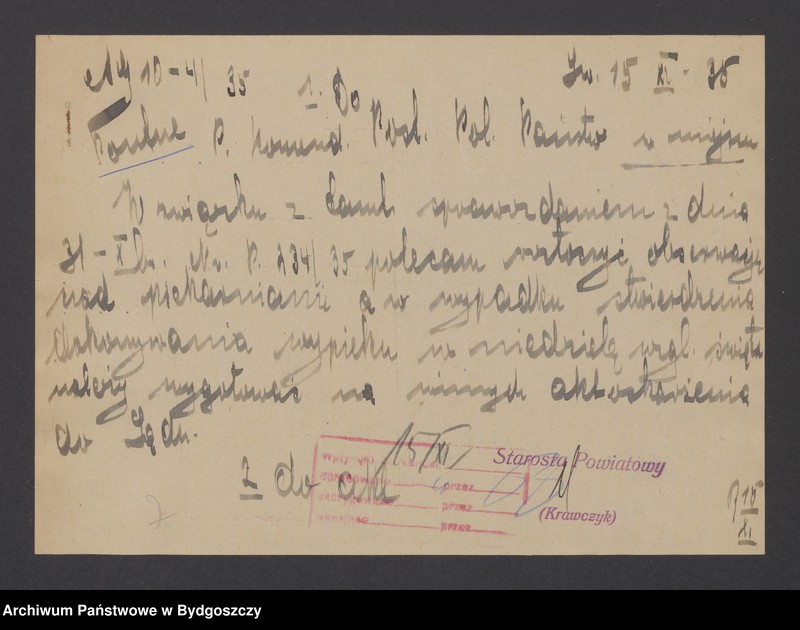 10-4/35 1. Do 15 XI - 35
Poufne P. Komend. Post. Pol. Państw. w miejscu
W związku z tamt. sprawozdaniem z dnia
31-X br. Nr. P. 234/35 polecam roztoczyć obserwację
nad piekarniami a w wypadku stwierdzenia
dokonywania wypieku w niedzielę wzgl. święta
należy wygotować na winnych akt oskarżenia
do Sądu.
15/XI
Starosta Powiatowy
2 do akt
przez
przez
przez
(Krawczyk)
15
XI
Archiwum Państwowe w Bydgoszczy